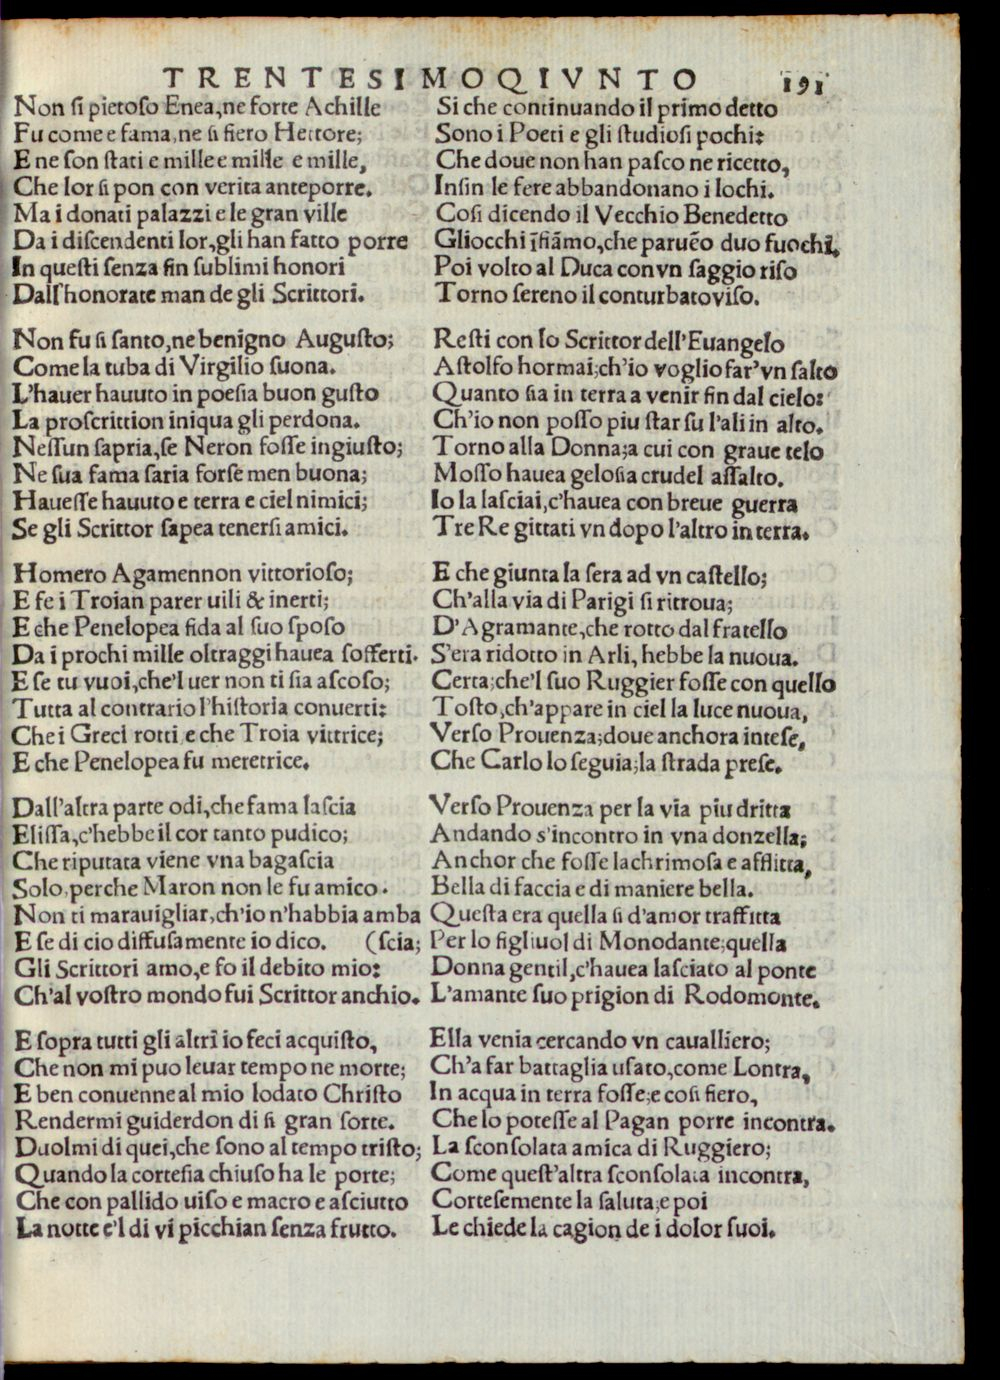 TRENTESIMOQIVNTO 191
Non si pietoso Enea, ne forte Achille
Fu come e fama, ne si fiero Hettore;
E ne son stati e mille e mille e mille,
Che lor si pon con verita anteporre.
Ma i donati palazzi e le gran ville
Da i discendenti lor, gli han fatto porre
In questi senza fin sublimi honori
Dall'honorate man de gli Scrittori.
Non fu si santo, ne benigno Augusto;
Come la tuba di Virgilio suona.
L'hauer hauuto in poesia buon gusto
La proscrittion iniqua gli perdona.
Nessun sapria, se Neron fosse ingiusto;
Ne sua fama saria forse men buona;
Hauesse hauuto e terra e ciel nimici;
Se gli Scrittor sapea tenersi amici.
Homero Agamennon vittorioso;
E fe i Troian parer uili & inerti;
E che Penelopea fida al suo sposo
Da i prochi mille oltraggi hauea sofferti.
E se tu vuoi, che'l uer non ti sia ascoso;
Tutta al contrario l'historia conuerti:
Che i Greci rotti e che Troia vittrice;
E che Penelopea fu meretrice.
Dall'altra parte odi, che fama lascia
Elissa, c'hebbe il cor tanto pudico;
Che riputata viene vna bagascia
Solo, perche Maron non le fu amico.
Non ti marauigliar, ch'io n'habbia amba
E se di cio diffusamente io dico. (scia;
Gli Scrittori amo, e fo il debito mio:
Ch'al vostro mondo fui Scrittor anchio.
E sopra tutti gli altri io feci acquisto,
Che non mi puo leuar tempo ne morte;
E ben conuenne al mio lodato Christo
Rendermi guiderdon di si gran sorte.
Duolmi di quei, che sono al tempo tristo;
Quando la cortesia chiuso ha le porte;
Che con pallido uiso e macro e asciutto
La notte e'l di vi picchian senza frutto.
Si che continuando il primo detto
Sono i Poeti e gli studiosi pochi:
Che doue non han pasco ne ricetto,
Insin le fere abbandonano i lochi.
Cosi dicendo il Vecchio Benedetto
Gliocchi īfiãmo, che paruẽo duo fuochi,
Poi volto al Duca con vn saggio riso
Torno sereno il conturbato viso.
Resti con lo Scrittor dell'Euangelo
Astolfo hormai; ch'io voglio far'vn salto
Quanto sia in terra a venir fin dal cielo:
Ch'io non posso piu star su l'ali in alto.
Torno alla Donna; a cui con graue telo
Mosso hauea gelosia crudel assalto.
Io la lasciai, c'hauea con breue guerra
Tre Re gittati vn dopo l'altro in terra.
E che giunta la sera ad vn castello;
Ch'alla via di Parigi si ritroua;
D'Agramante, che rotto dal fratello
S'era ridotto in Arli, hebbe la nuoua.
Certa; che'l suo Ruggier fosse con quello
Tosto, ch'appare in ciel la luce nuoua,
Verso Prouenza; doue anchora intese,
Che Carlo lo seguia; la strada prese.
Verso Prouenza per la via piu dritta
Andando s'incontro in vna donzella;
Anchor che fosse lachrimosa e afflitta,
Bella di faccia e di maniere bella.
Questa era quella si d'amor traffitta
Per lo figliuol di Monodante; quella
Donna gentil, c'hauea lasciato al ponte
L'amante suo prigion di Rodomonte.
Ella venia cercando vn caualliero;
Ch'a far battaglia usato, come Lontra,
In acqua in terra fosse; e cosi fiero,
Che lo potesse al Pagan porre incontra.
La sconsolata amica di Ruggiero;
Come quest'altra sconsolata incontra,
Cortesemente la saluta; e poi
Le chiede la cagion de i dolor suoi.